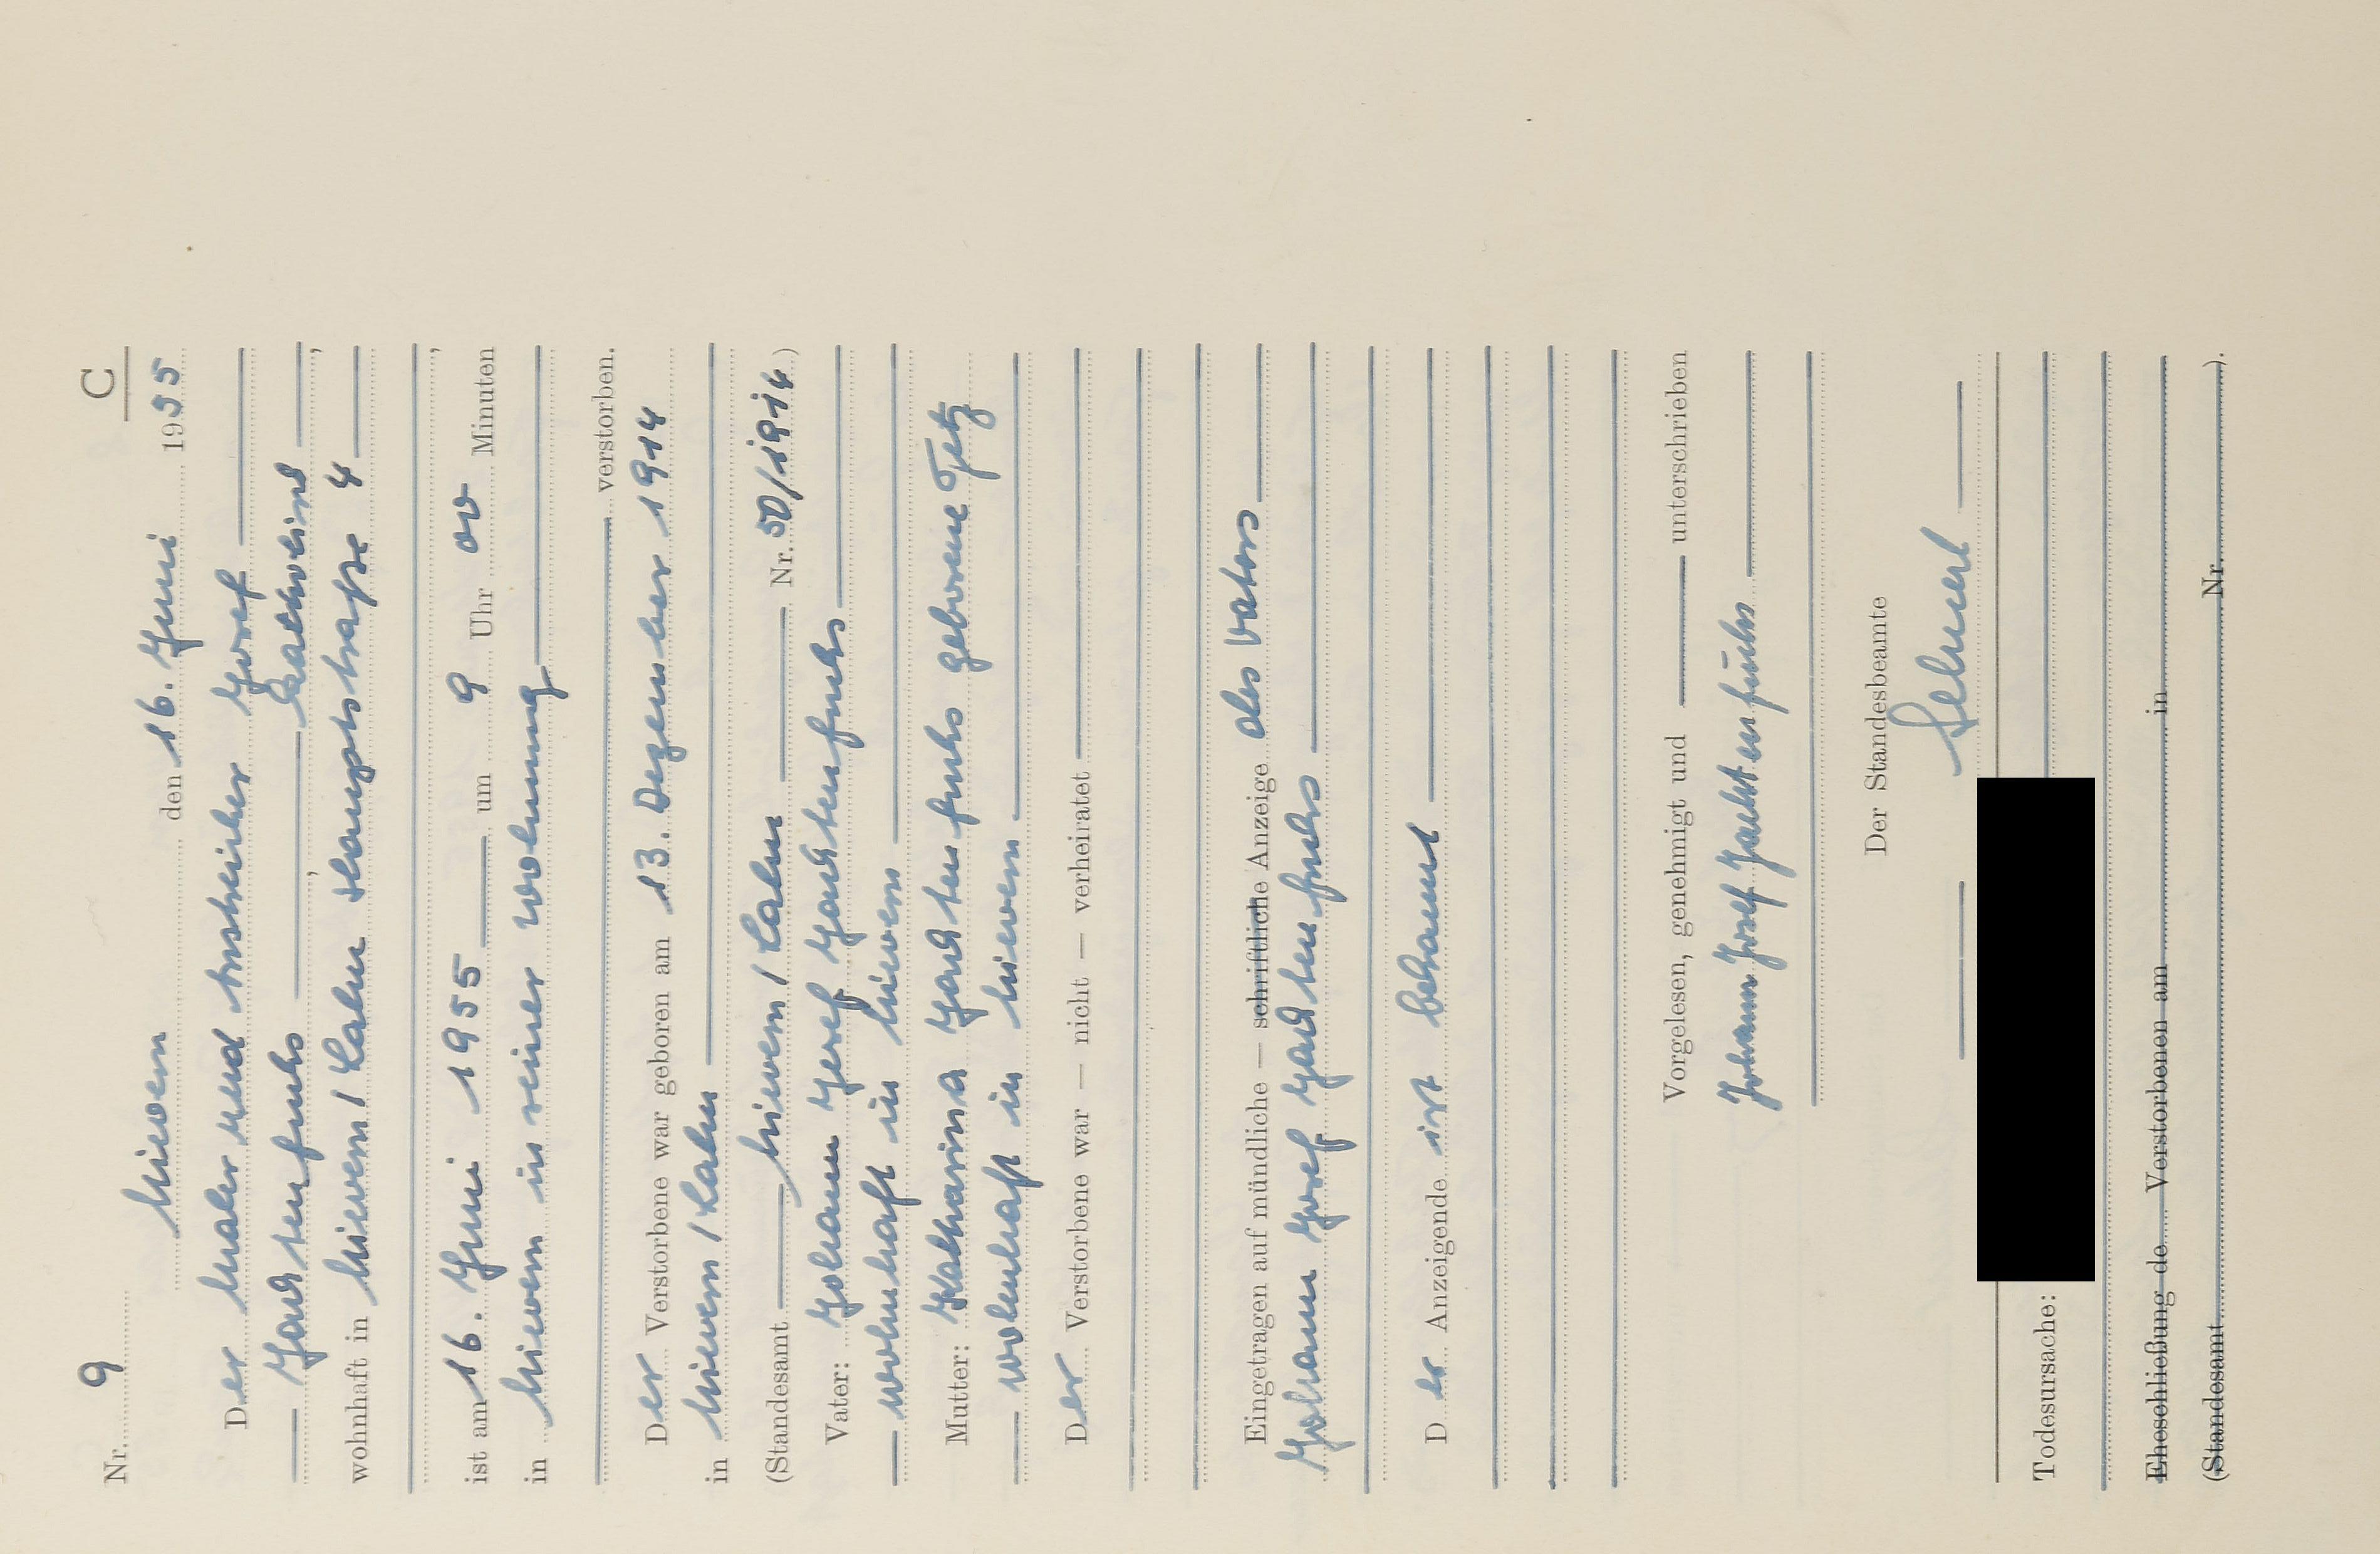 C
Nr. 9
Nievern den 16. Juni 1955
Der Maler und Anstreicher Josef
Jachtenfuchs ,
wohnhaft in Nievern/Lahn Hauptstraße 4
ist am 16. Juni 1955 um 9 Uhr 00 Minuten
in Nievern in seiner Wohnung
verstorben.
Der Verstorbene war geboren am 13. Dezember 1914
in Nievern/Lahn
(Standesamt Nievern/Lahn Nr. 50/1914)
Vater: Johann Josef Jachtenfuchs
wohnhaft in Nievern
Mutter: Katharina Jachtenfuchs geborene Fetz
wohnhaft in Nievern
Der Verstorbene war — nicht — verheiratet
Eingetragen auf mündliche — schriftliche Anzeige des Vaters
Johann Josef Jachtenfuchs
D er Anzeigende ist bekannt
Vorgelesen, genehmigt und unterschrieben
Johann Josef Jachtenfuchs
Der Standesbeamte
Todesursache:
Eheschließung de Verstorbenen am in
(Standesamt Nr. ).